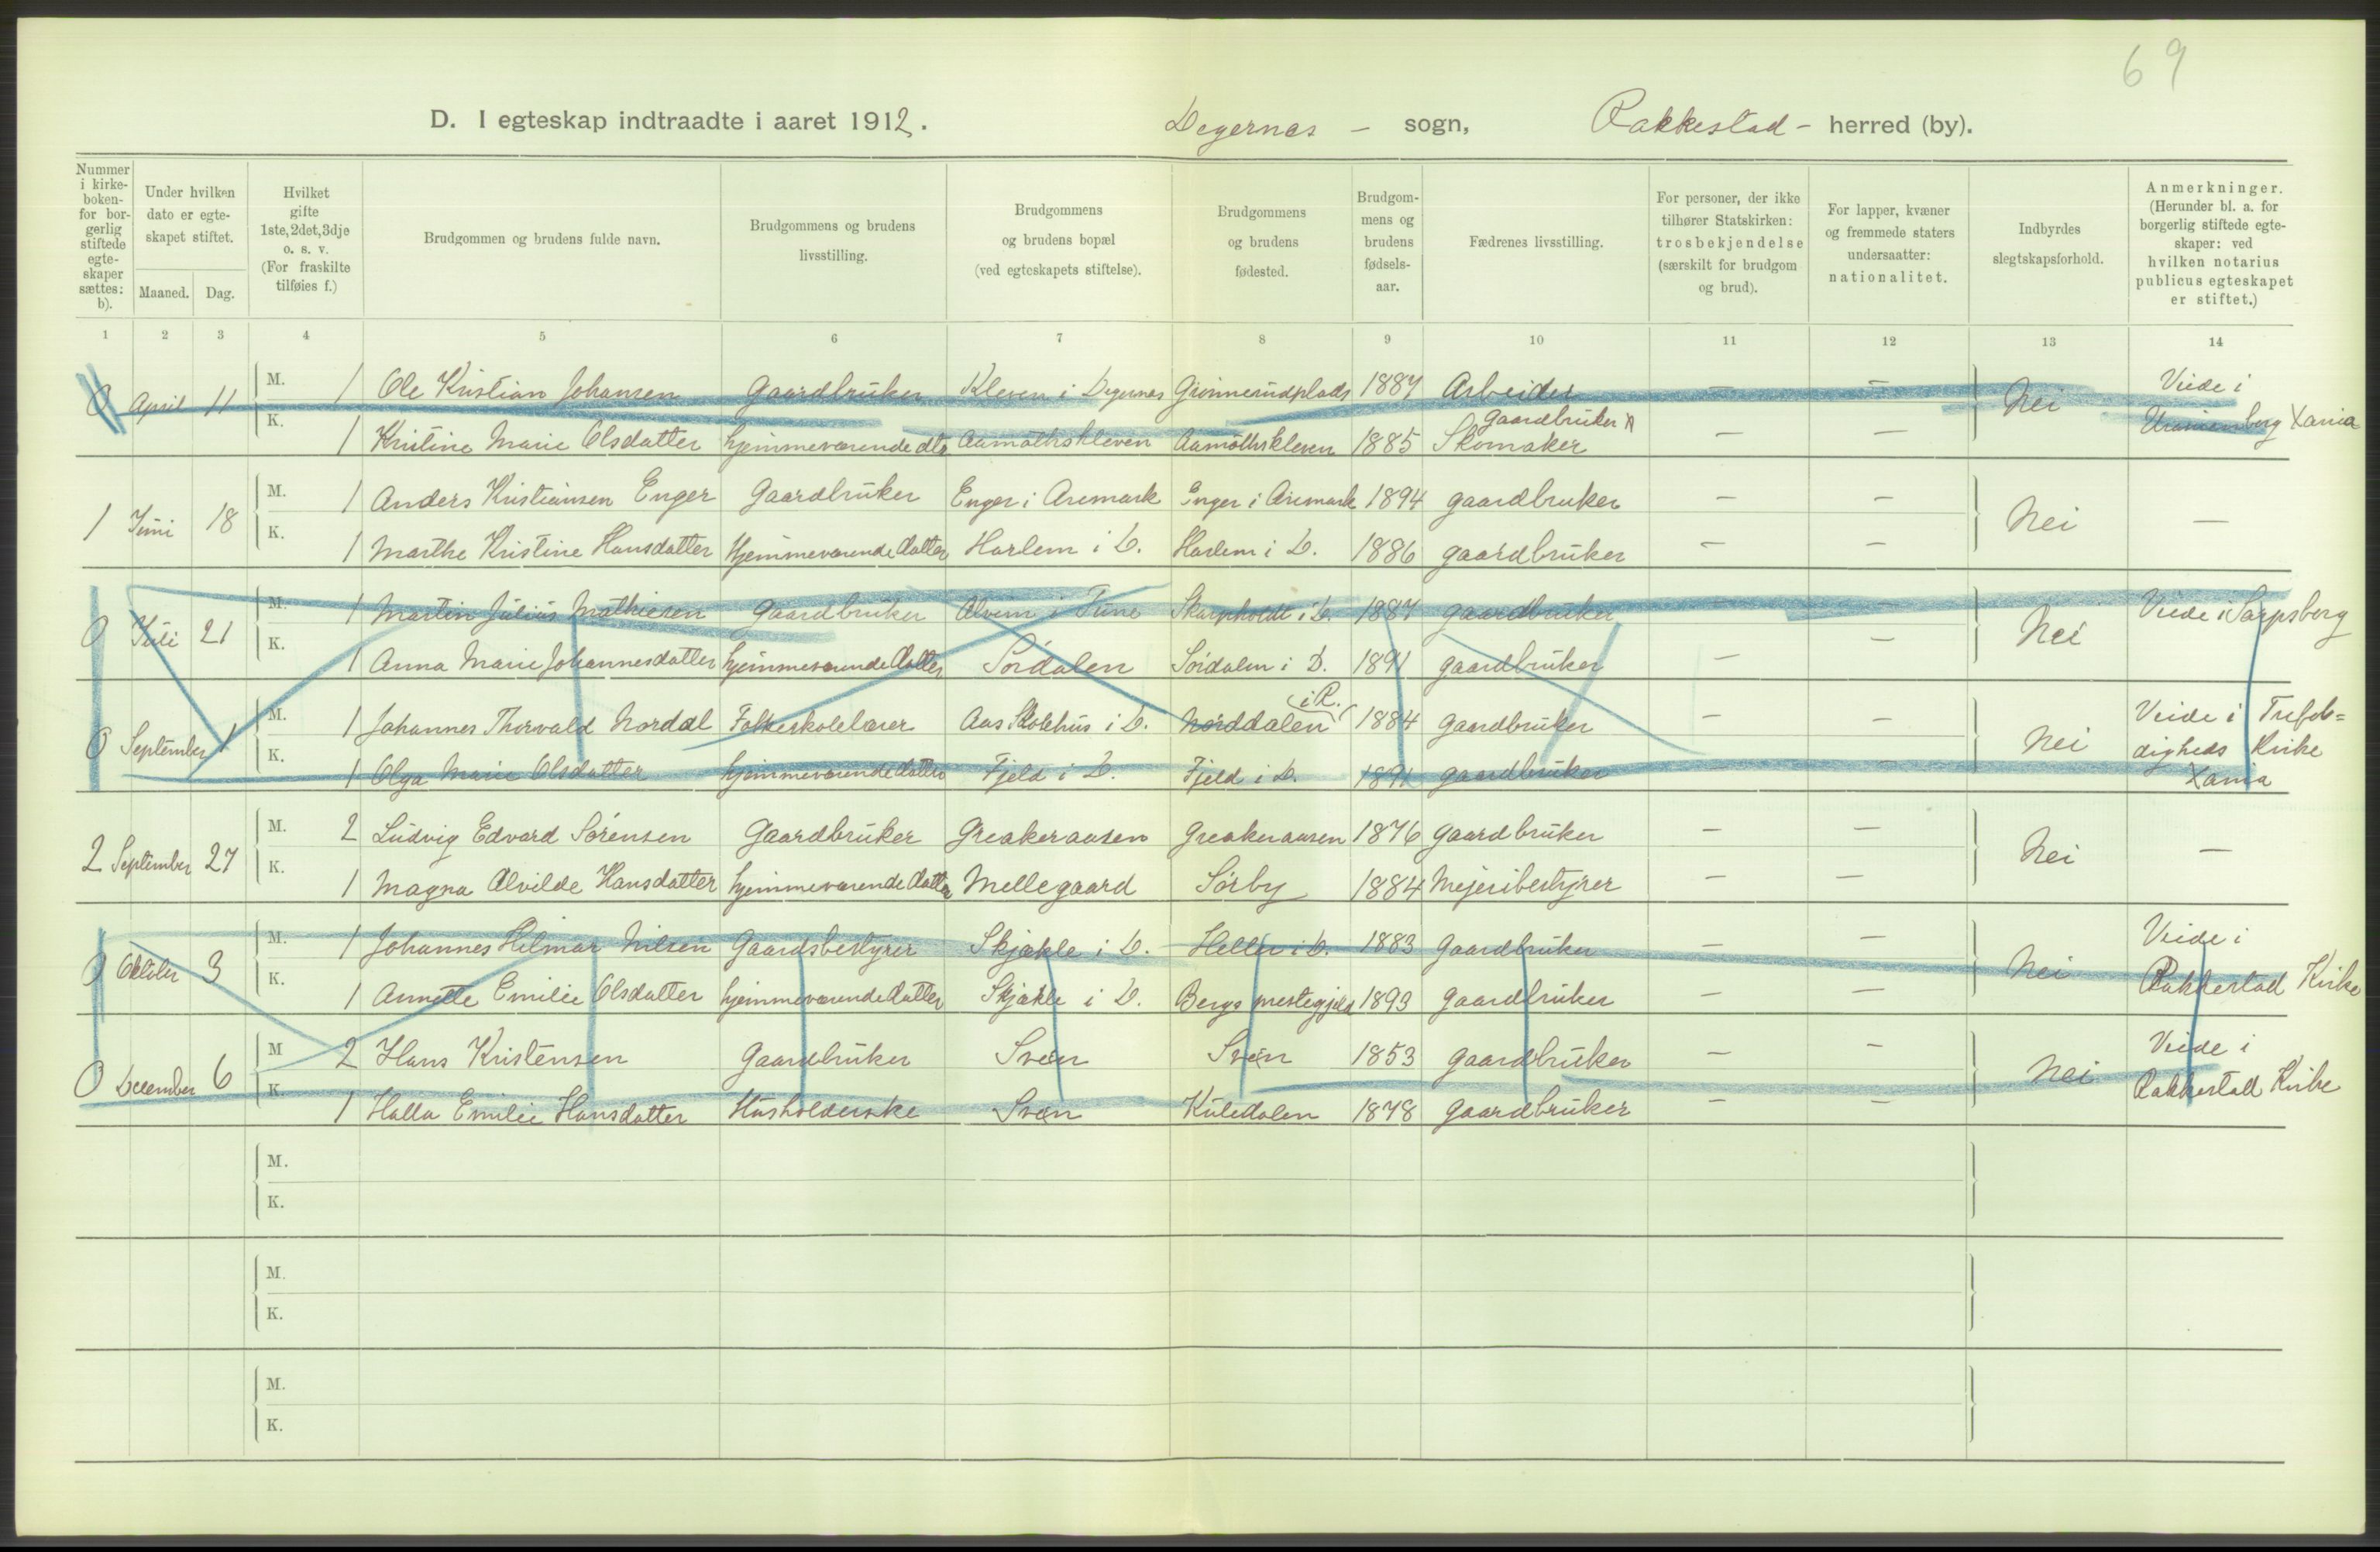 69
D. I egteskap indtraadte i aaret 1912. Degernes - sogn, Rakkestad - herred (by).
Nummer i kirke- boken- for bor- gerlig stiftede egte- skaper sættes: b).
Under hvilken dato er egte- skapet stiftet.
Maaned. Dag.
Hvilket gifte 1ste, 2det, 3dje o. s. v. (For fraskilte tilføies f.)
Brudgommen og brudens fulde navn.
Brudgommens og brudens livsstilling.
Brudgommens og brudens bopæl (ved egteskapets stiftelse).
Brudgommens og brudens fødested.
Brudgom- mens og brudens fødsels- aar.
Fædrenes livsstilling.
For personer, der ikke tilhører Statskirken: trosbekjendelse (særskilt for brudgom og brud).
For lapper, kvæner og fremmede staters undersaatter: nationalitet.
Indbyrdes slegtskapsforhold.
Anmerkninger. (Herunder bl. a. for borgerlig stiftede egte- skaper: ved hvilken notarius publicus egteskapet er stiftet.)
1 2 3 4 5 6 7 8 9 10 11 12 13 14
0 April 11 M. 1 Ole Kristian Johansen Gaardbruker Kleven i Degernes Grønnerudplads 1887 Arbeider — — Nei Viede i Uranienborg Xania
K. 1 Kristine Marie Olsdatter hjemmeværende dtr Aamothskleven Aamothskleven 1885 Gaardbruker Skomaker — —
1 Juni 18 M. 1 Anders Kristiansen Enger Gaardbruker Enger i Aremark Enger i Aremark 1894 gaardbruker — — Nei —
K. 1 Marthe Kristine Hansdatter Hjemmeværende datter Harlem i D. Harlem i D. 1886 gaardbruker — —
0 Juli 21 M. 1 Martin Julius Mathiesen Gaardbruker Alvim i Tune Skarpholdt i D. 1887 gaardbruker — — Nei Viede i Sarpsborg
K. 1 Anna Marie Johannesdatter hjemmeværende datter Sørdalen Sørdalen i D. 1891 gaardbruker — —
0 September 1 M. 1 Johannes Thorvald Nordal Folkeskolelærer Aas Skolehus i D. Norddalen (i R.) 1884 gaardbruker — — Nei Viede i Trefol= digheds Kirke Xania
K. 1 Olga Marie Olsdatter hjemmeværende datter Fjeld i D. Fjeld i D. 1891 gaardbruker — —
2 September 27 M. 2 Ludvig Edvard Sørensen Gaardbruker Greakeraasen Greakeraasen 1876 gaardbruker — — Nei —
K. 1 Magna Alvilde Hansdatter hjemmeværende datter Mellegaard Sørby 1884 Mejeribestyrer — —
0 Oktober 3 M. 1 Johannes Hilmar Nilsen Gaardsbestyrer Skjækle i D. Heller i D. 1883 Gaardbruker — — Nei Viede i Rakkestad Kirke
K. 1 Annette Emilie Olsdatter hjemmeværende datter Skjækle i D. Bergs prestegjeld 1893 gaardbruker — —
0 December 6 M 2 Hans Kristensen Gaardbruker Sven Sven 1853 gaardbruker — — Nei Viede i Rakkestad Kirke
K. 1 Halla Emilie Hansdatter Husholderske Sven Kuledalen 1878 gaardbruker — —
M.
K.
M.
K.
M.
K.